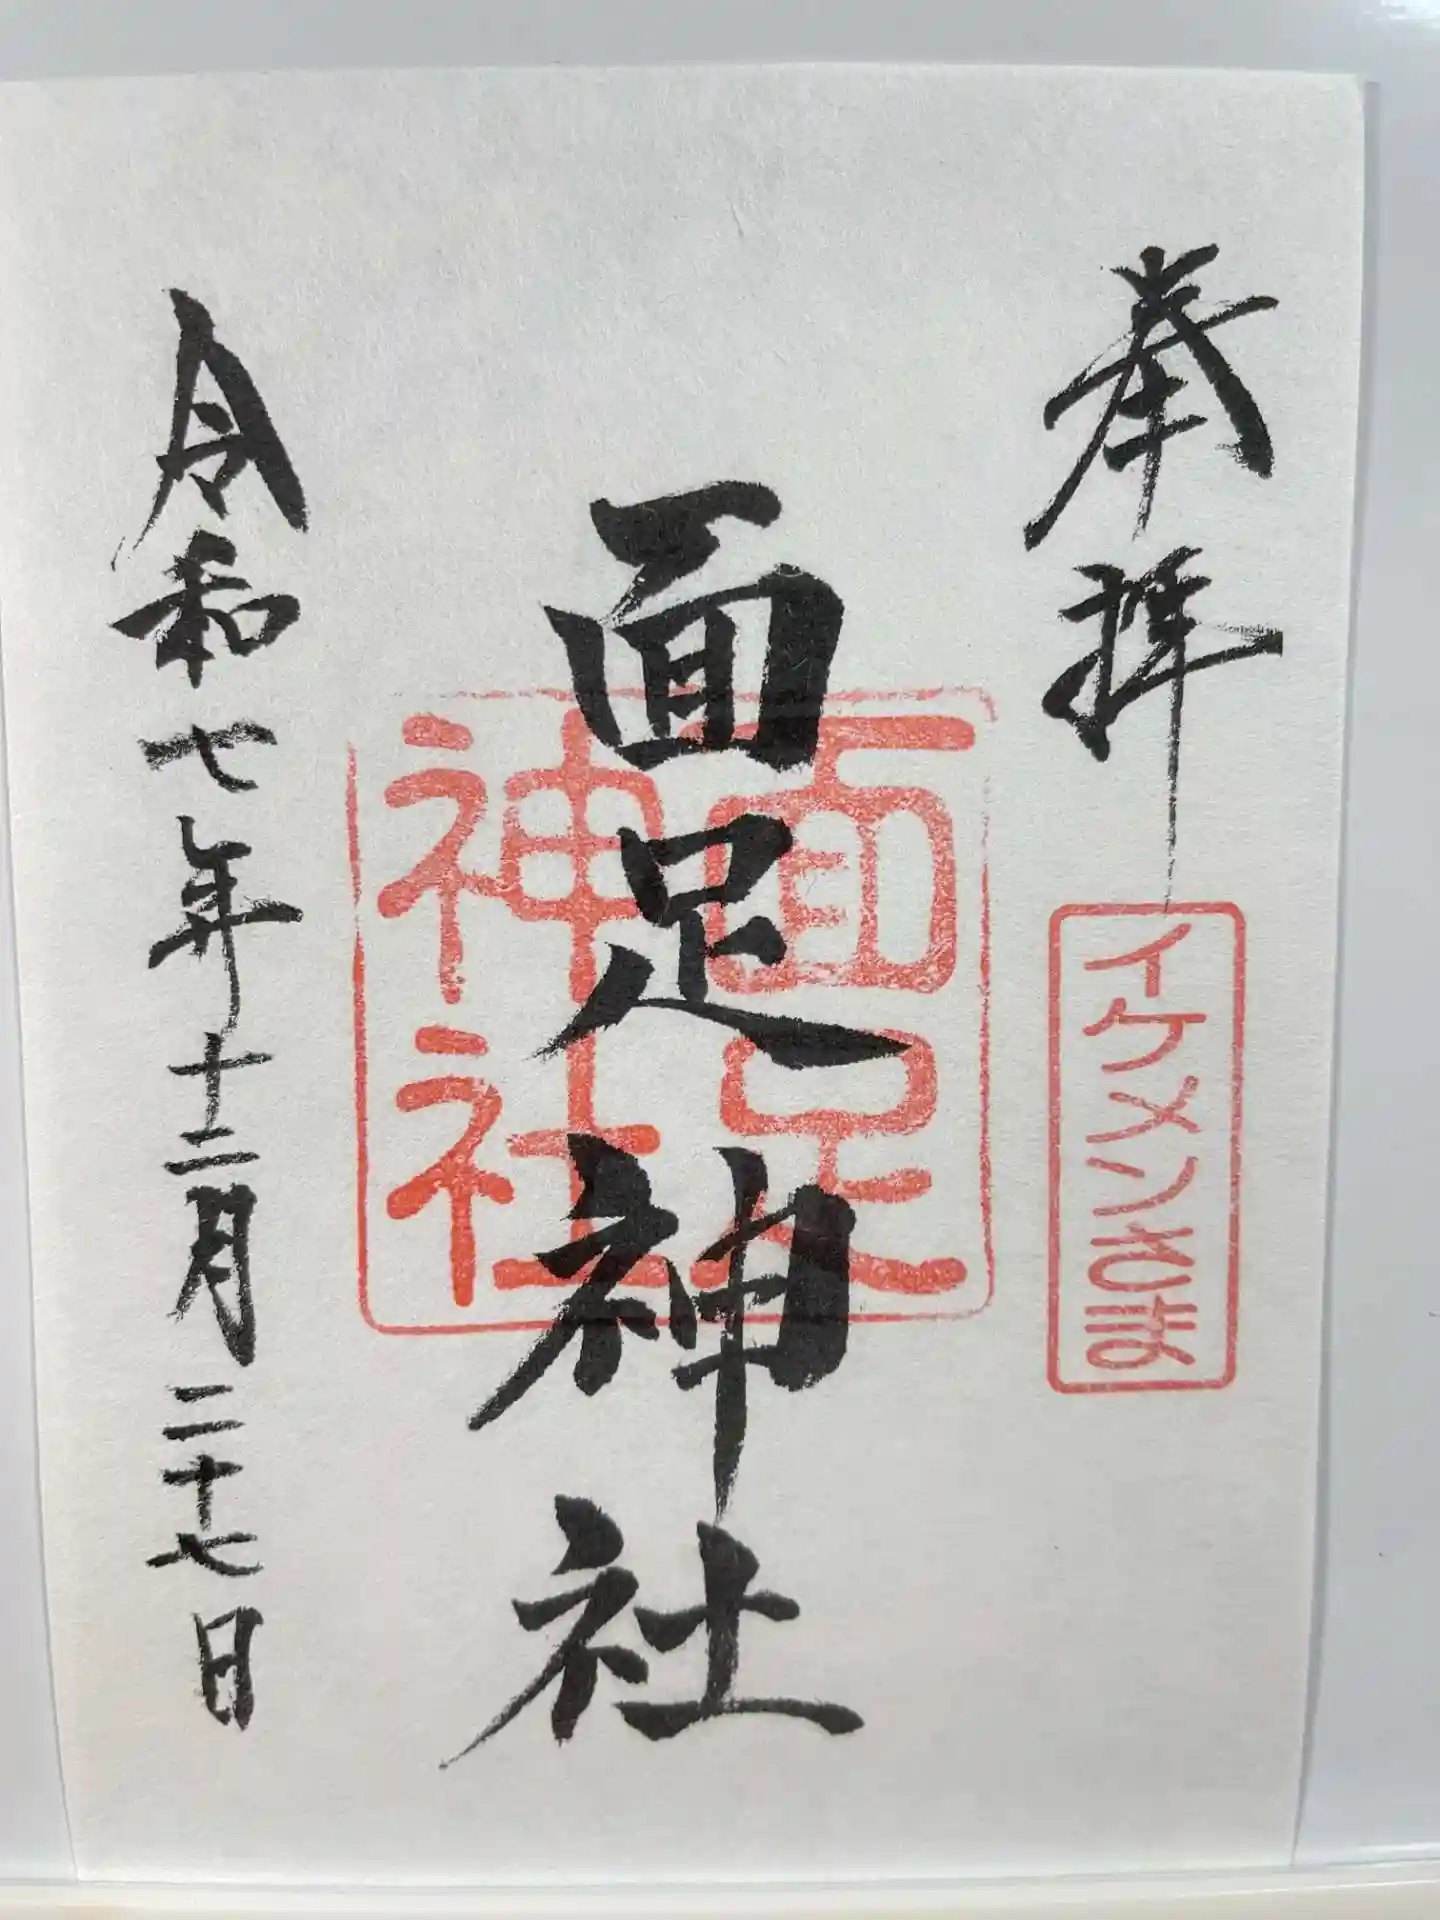 奉拝
イケメンさま
面足神社
面足神社
令和七年十二月二十七日